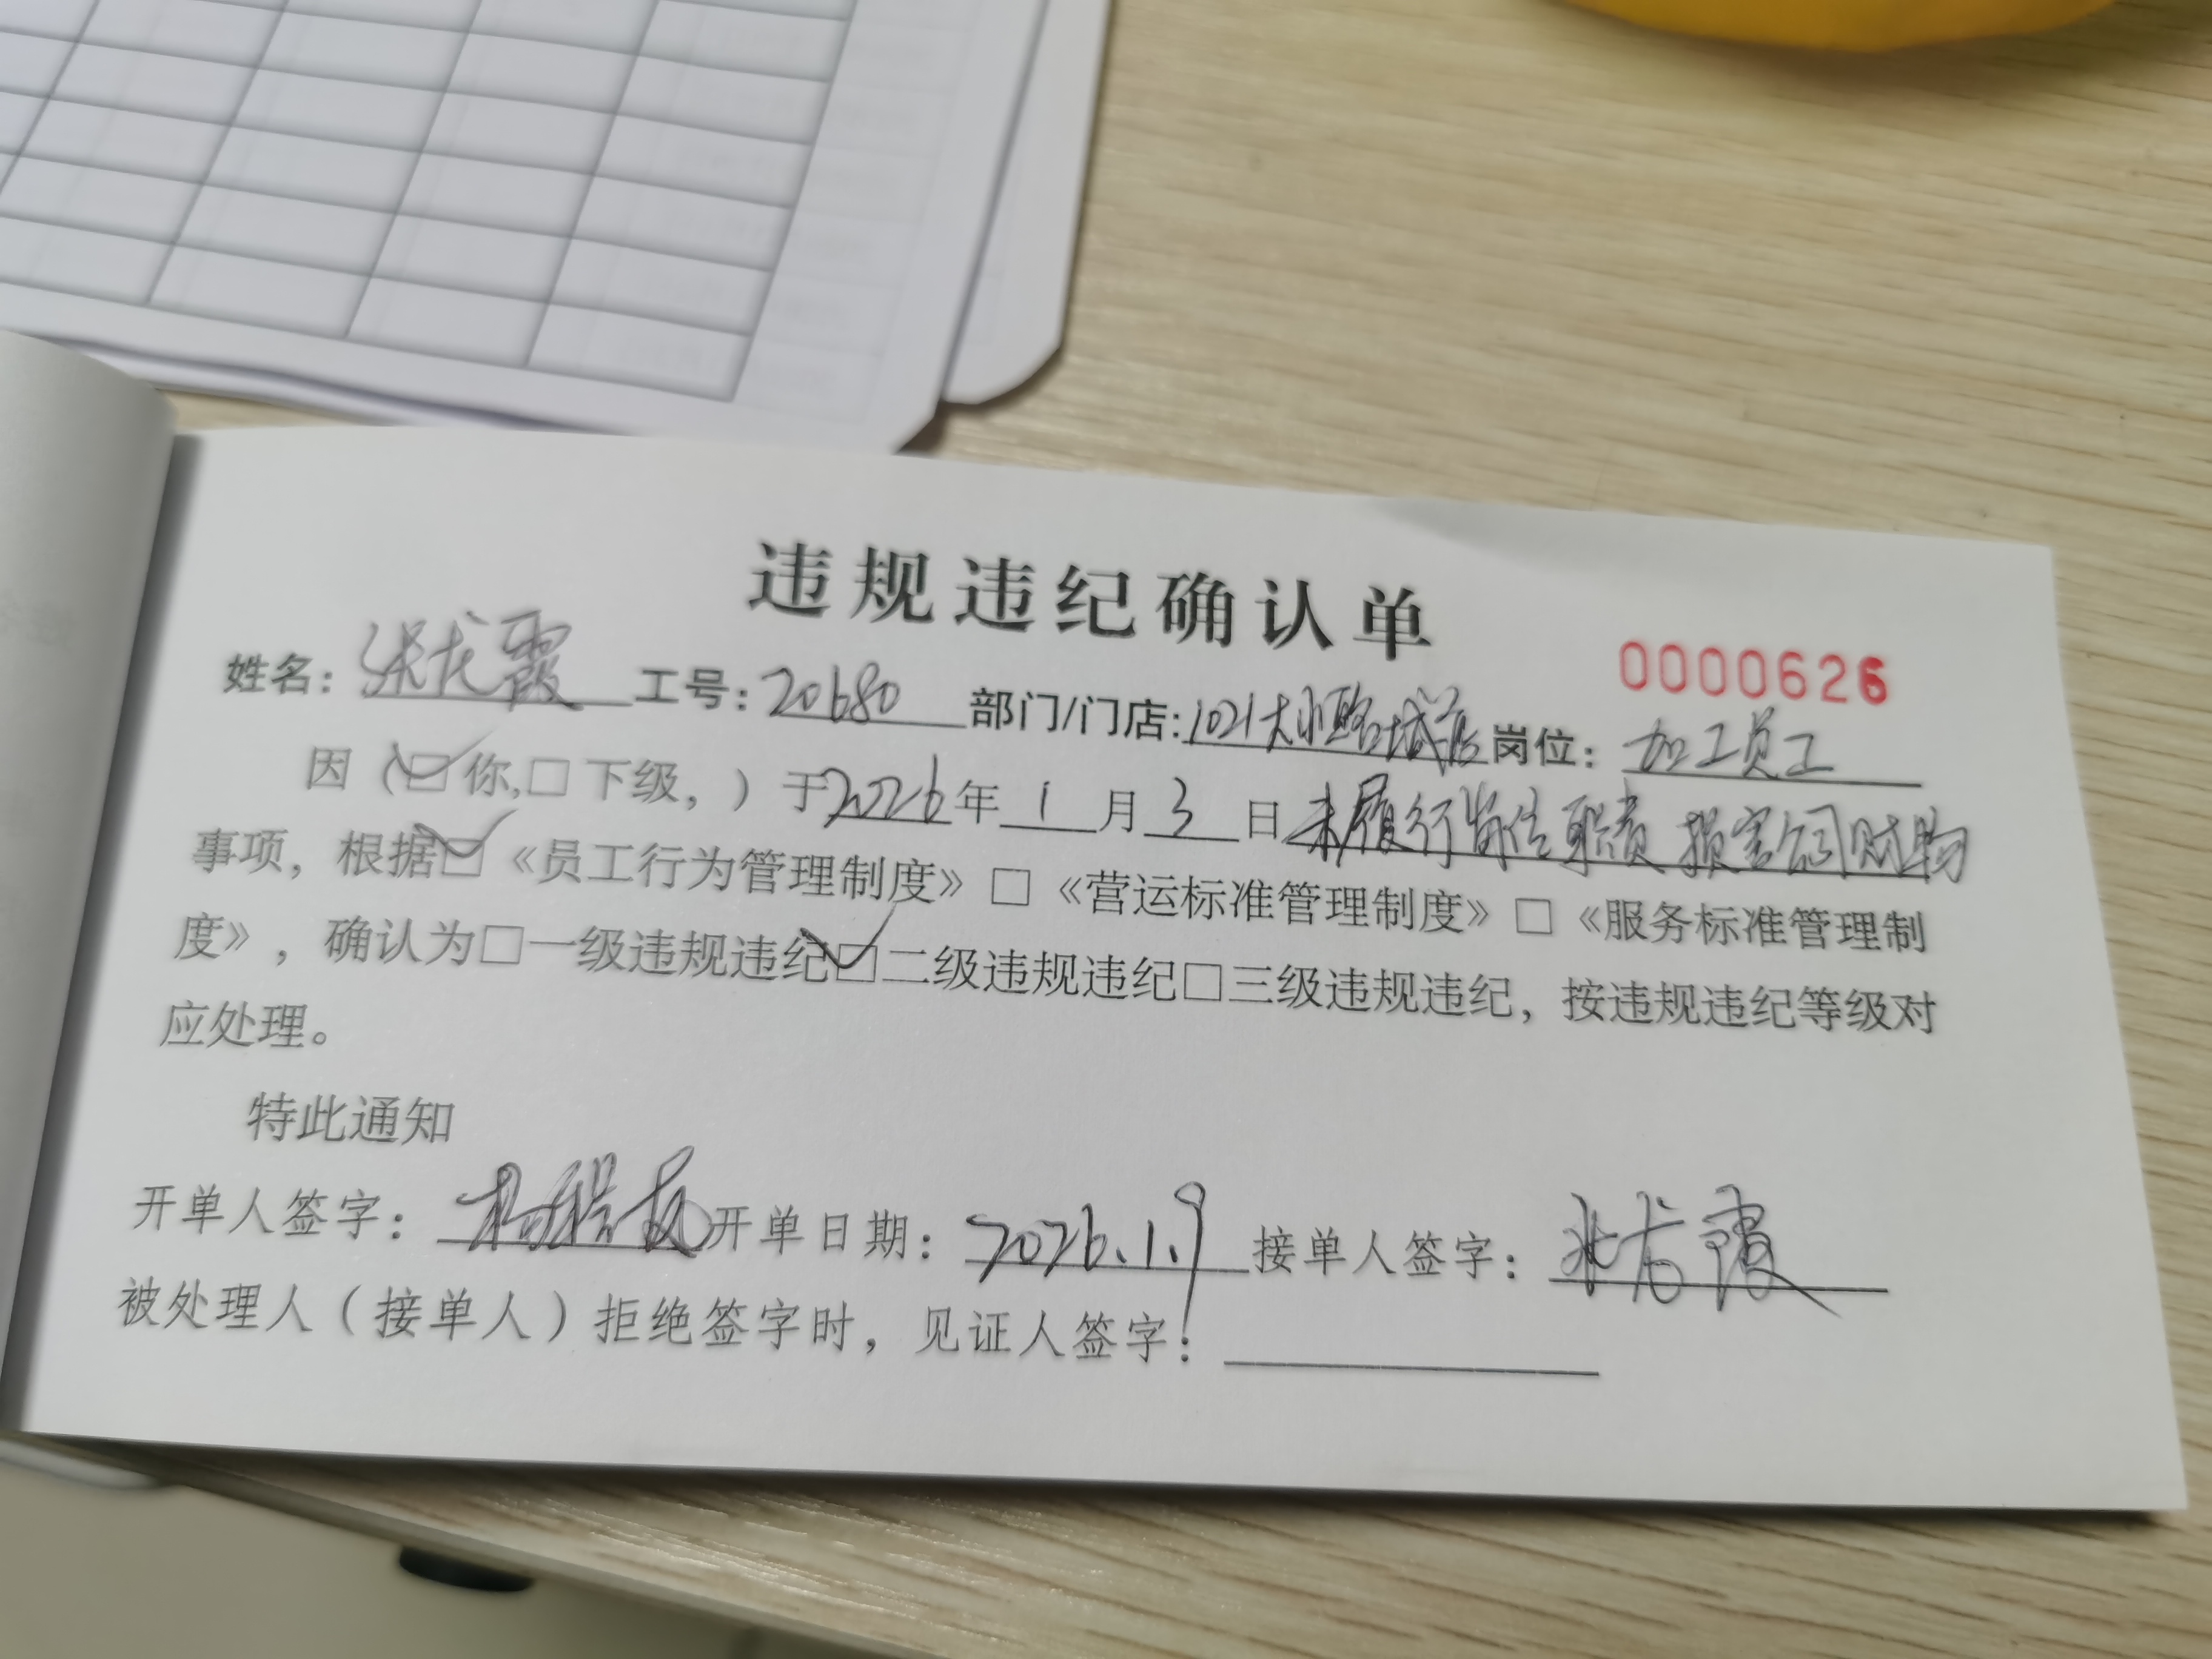 违规违纪确认单
0000626
姓名：张龙霞 工号：20680 部门/门店：1021大 城店 岗位：加工员工
因（☑你,□下级，）于2026年1月3日未履行 职责 损害公司财物
事项，根据☑《员工行为管理制度》□《营运标准管理制度》□《服务标准管理制
度》，确认为□一级违规违纪☑二级违规违纪□三级违规违纪，按违规违纪等级对
应处理。
特此通知
开单人签字： 开单日期：2026.1.9 接单人签字：张龙霞
被处理人（接单人）拒绝签字时，见证人签字：